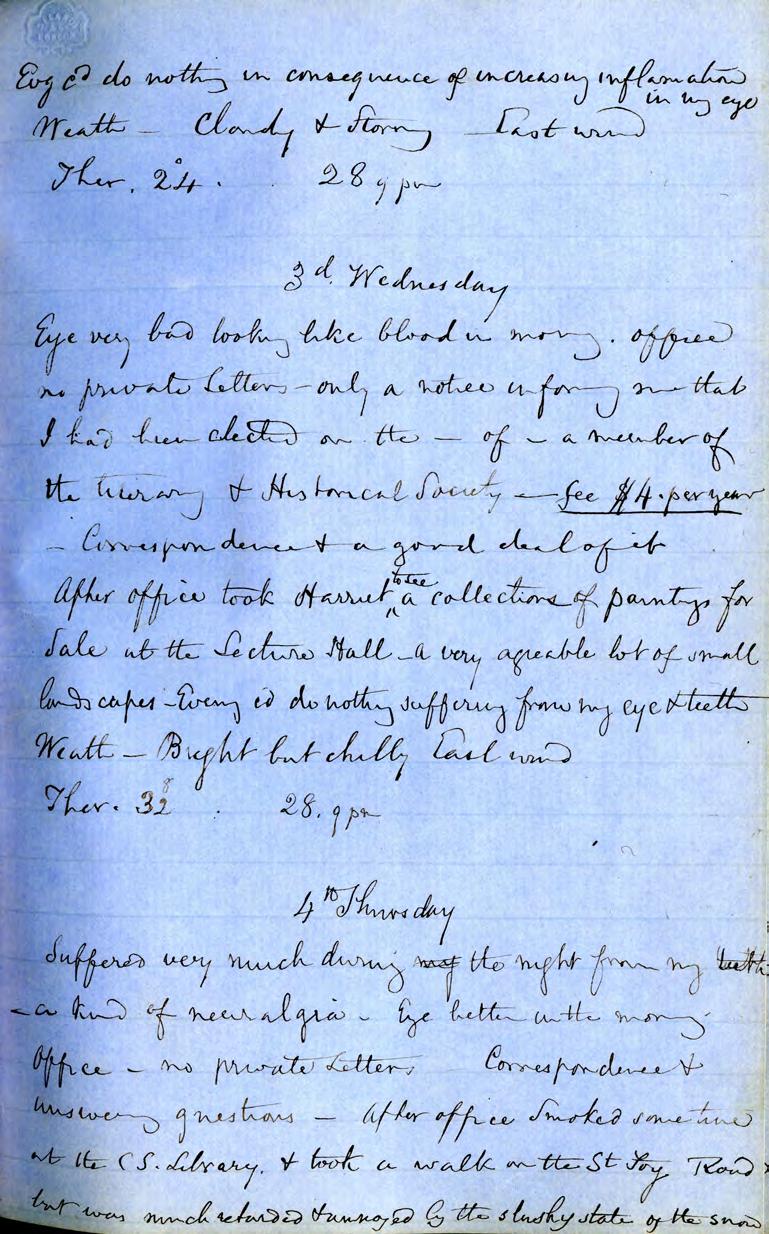 Evg cd do nothing in consequence of increasing inflamation
in my eye
Weath – Cloudy & Stormy East wind
Ther. 24° . 28 9 pm
3d. Wednesday
Eye very bad looking like blood in morng. office
no private Letters – only a notice informg me that
I had been elected on the – of – a member of
the Literary & Historical Society – fee $4. per year
– Correspondence & a good deal of it
After office took Harriet to see a collections of paintings for
Sale at the Lecture Hall – a very agreable lot of small
landscapes – Eveng cd do nothing suffering from my eye & teeth
Weath – Bright but chilly East wind
Ther. 32° . 28. 9 pm
4th Thursday
Suffered very much during my the night from my teeth
– a kind of neuralgia – Eye better in the morng
Office – no private Letters Correspondence &
answering questions – After office Smoked some time
at the C S. Library. & took a walk on the St Foy Road &
but was much retarded & annoyed by the slushy state of the snow